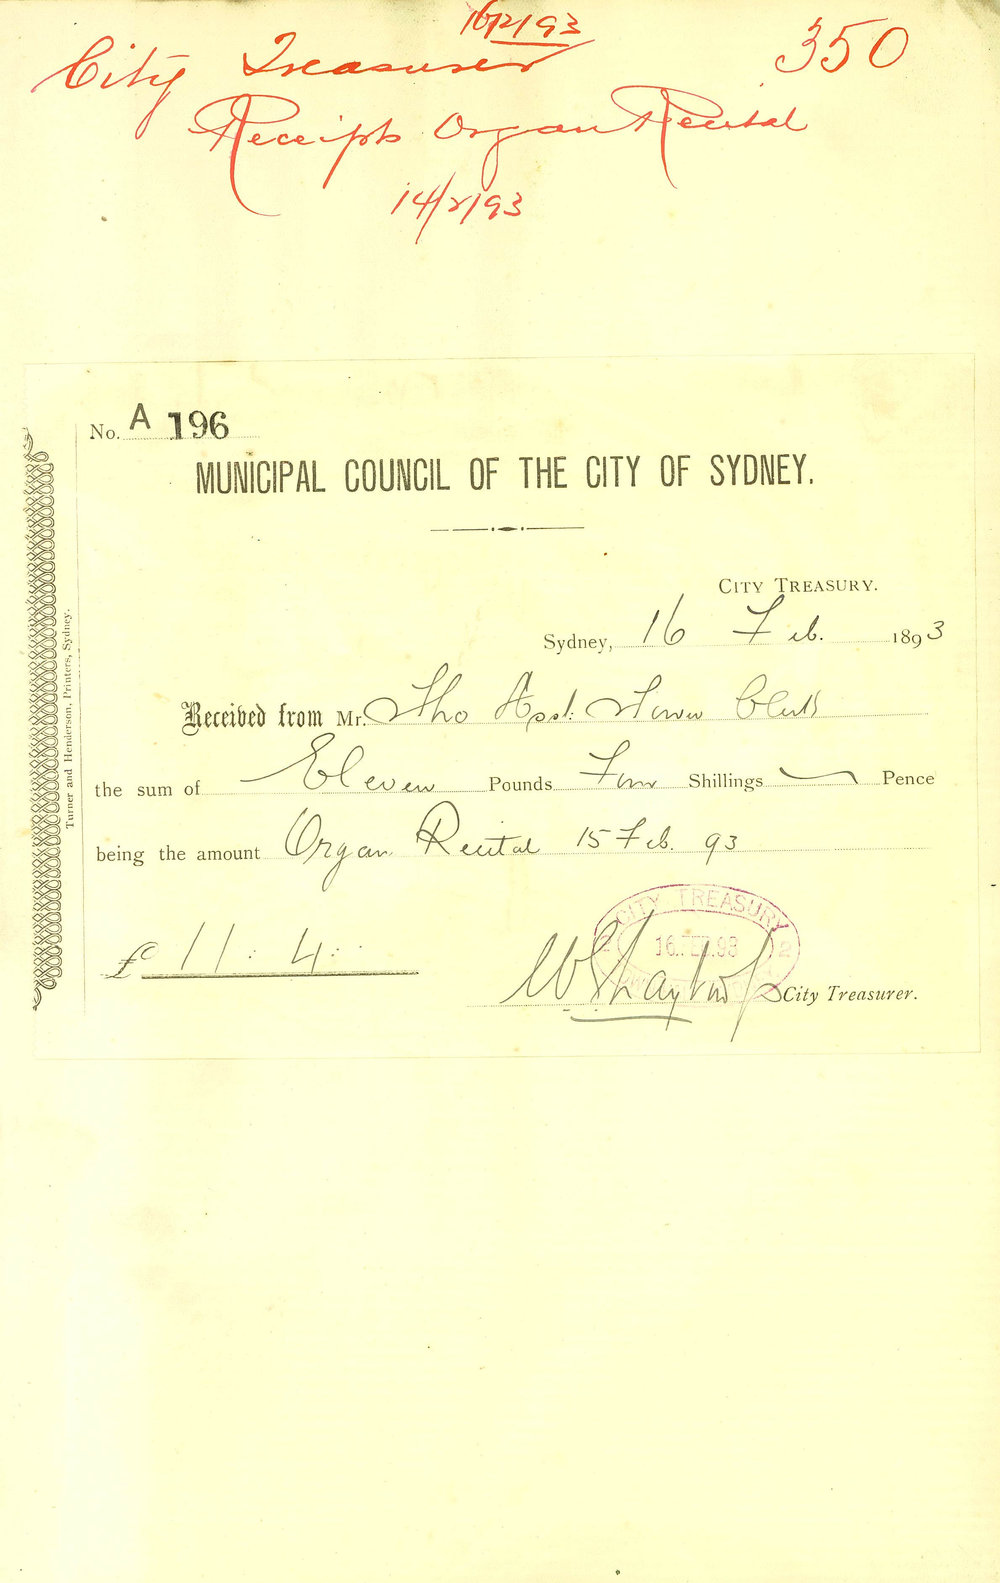 16/2/93
City Treasurer
350
Receipts Organ Recital
14/2/93
No. A 196
MUNICIPAL COUNCIL OF THE CITY OF SYDNEY.
CITY TREASURY.
Sydney, 16 Feb. 1893
Received from Mr. The Asst: Town Clerk
the sum of Eleven Pounds Four Shillings — Pence
being the amount Organ Recital 15 Feb. 93
£ 11 : 4 :
CITY TREASURY
16. FEB. 93
City Treasurer.
Turner and Henderson, Printers, Sydney.